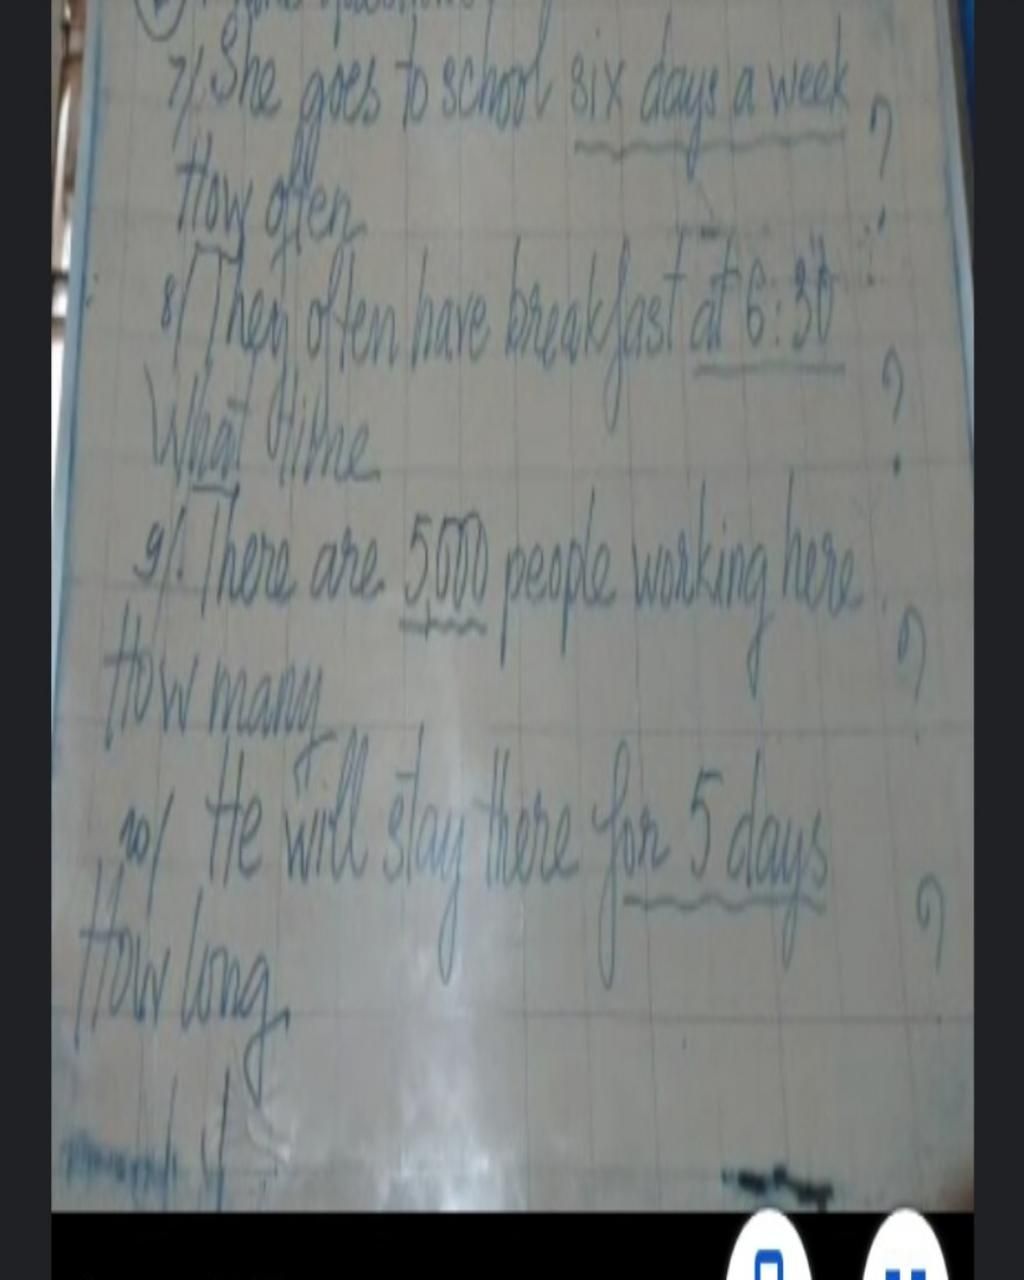 7/ She goes to school six days a week
How often ?
8/ They often have breakfast at 6:30
What time ?
9/. There are 5000 people working here.
How many ?
10/ He will stay there for 5 days
How long ?